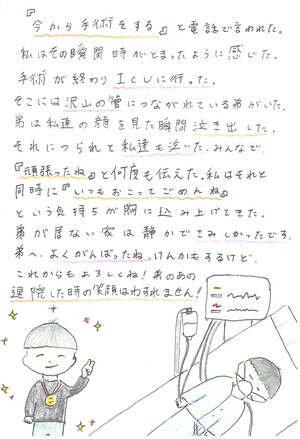 『今から手術をする』と電話で言われた。
私はその瞬間時がとまったように感じた。
手術が終わりICUに行った。
そこには沢山の管につながれている弟がいた。
弟は私達の顔を見た瞬間泣き出した。
それにつられて私達も泣いた。みんなで、
『頑張ったね』と何度も伝えた。私はそれと
同時に『いつもおこってごめんね』
という気持ちが胸に込み上げてきた。
弟が居ない家は静かでさみしかったです。
弟へ、よくがんばったね。けんかもするけど、
これからもよろしくね!弟のあの
退院した時の笑顔はわすれません!